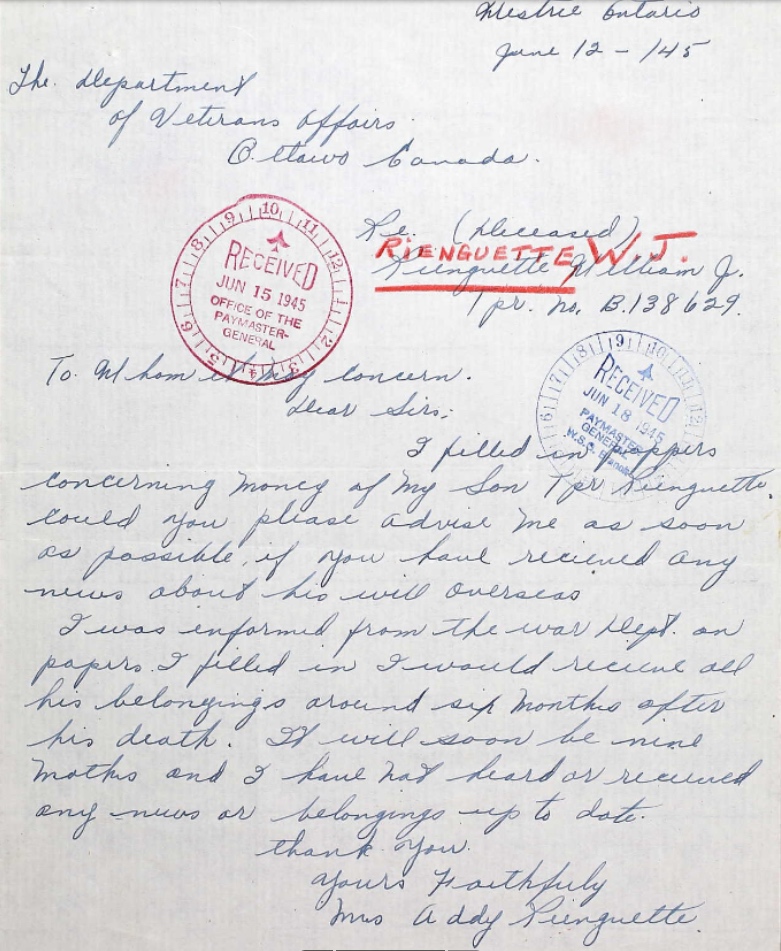 Mestrie Ontario
June 12 - /45
The Department
of Veterans Affairs.
Ottawa Canada.
Re. (Deceased)
RIENGUETTE W.J.
Rienguette William J.
Tpr. No. B.138629.
9 10 11 12 1 2 3 4 5 6 7 8
RECEIVED
JUN 15 1945
OFFICE OF THE
PAYMASTER-
GENERAL
To Whom it May Concern.
Dear Sirs;
6 7 8 9 10 12
RECEIVED
JUN 18 1945
PAYMASTER
GENERAL
W.S.G.
I filled in pappers
concerning money of My Son Tpr Rienguette.
could you please advise Me as soon
as possible, if you have recieved any
news about his will overseas
I was informed from the war Dept. on
papers I filled in I would recieve all
his belongings around six Months after
his death. It will soon be nine
Moths and I have Not heard or recieved
any news or belongings up to date.
thank You.
Yours Faithfully
Mrs Addy Rienguette.